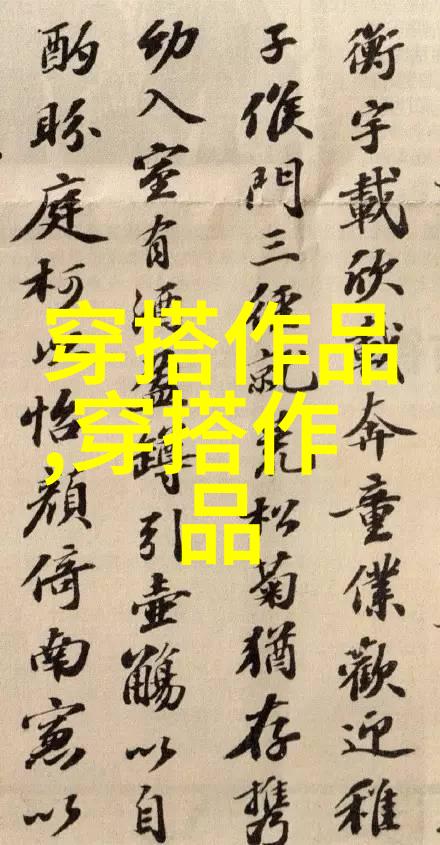 衡宇載欣載奔童僕歡迎稚
子候門三徑就荒松菊猶存携
幼入室有酒盈罇引壺觴以自
酌眄庭柯以怡顔倚南窓以
穿搭作品
,穿搭作
品